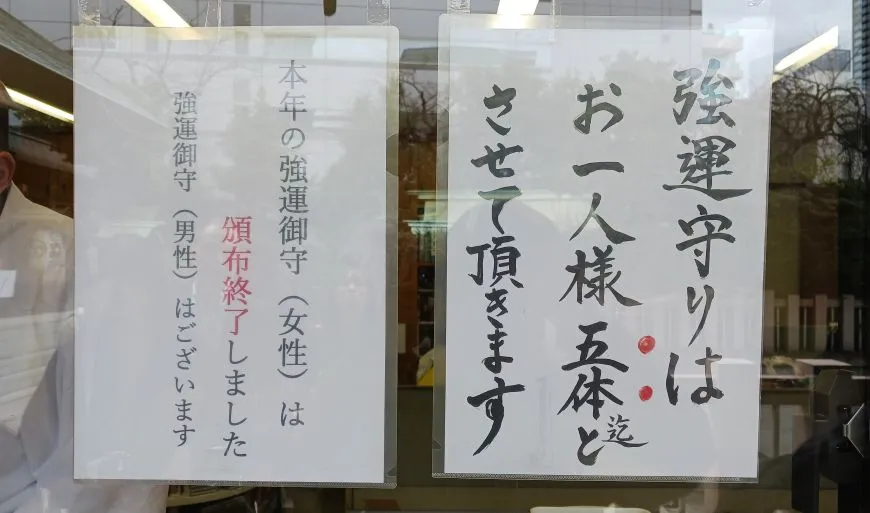 強運守りは
お一人様 五体迄と
させて頂きます
本年の強運御守（女性）は
頒布終了しました
強運御守（男性）はございます